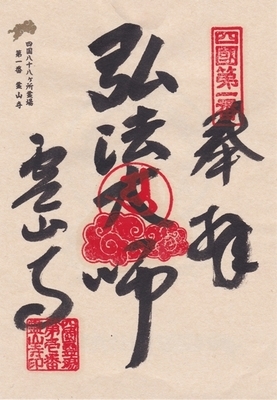 四國第一番
奉拝
弘法大師
霊山寺
四国八十八ヶ所霊場
第一番 霊山寺